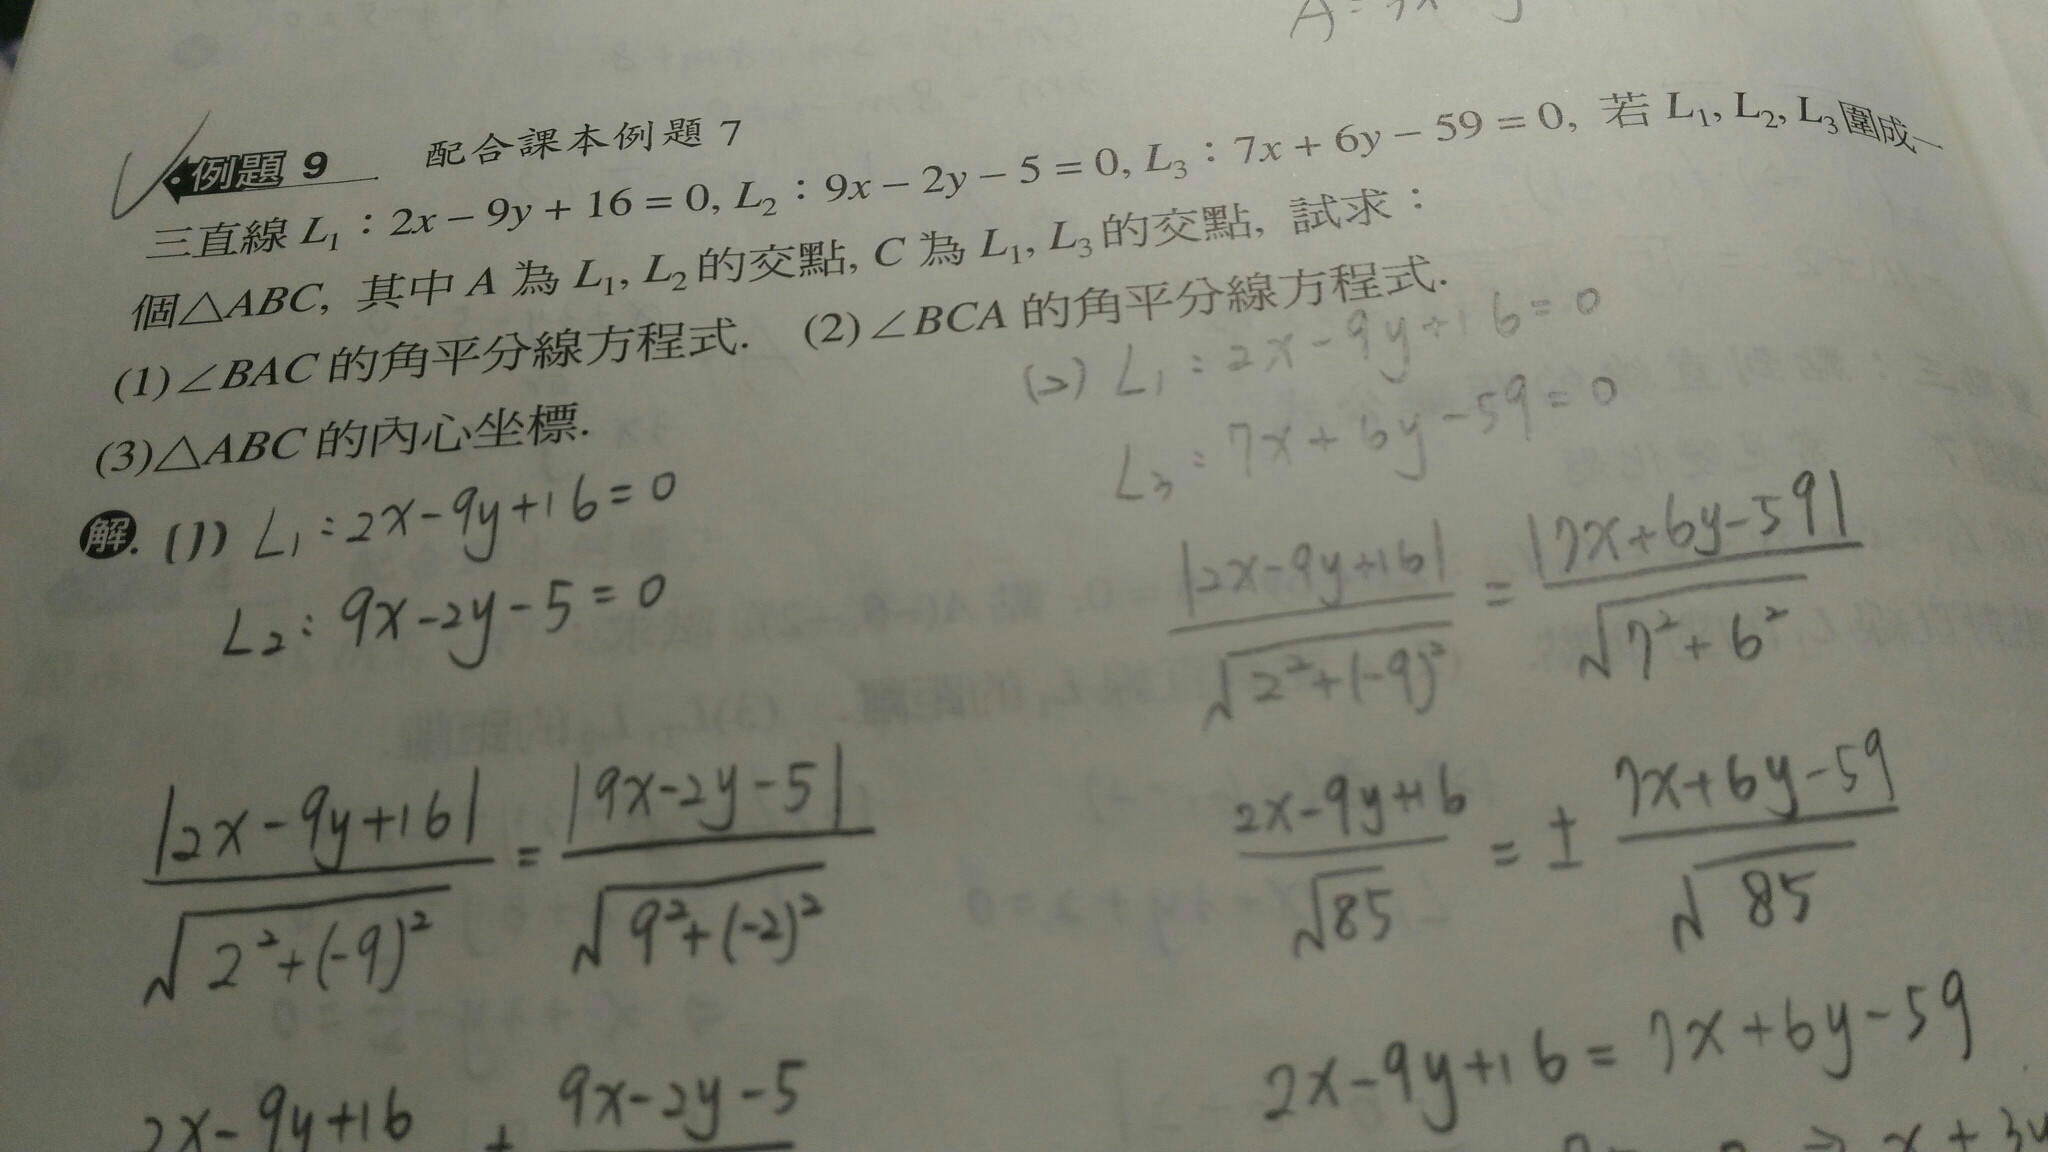 例題 9 配合課本例題 7
三直線 L₁：2x − 9y + 16 = 0, L₂：9x − 2y − 5 = 0, L₃：7x + 6y − 59 = 0, 若 L₁, L₂, L₃ 圍成一
個△ABC, 其中 A 為 L₁, L₂ 的交點, C 為 L₁, L₃ 的交點, 試求：
(1)∠BAC 的角平分線方程式. (2)∠BCA 的角平分線方程式.
(3)△ABC 的內心坐標.
解. (1) L₁：2x-9y+16=0
L₂：9x-2y-5=0
|2x-9y+16| / √(2²+(-9)²) = |9x-2y-5| / √(9²+(-2)²)
2x-9y+16 9x-2y-5
(2) L₁：2x-9y+16=0
L₃：7x+6y-59=0
|2x-9y+16| / √(2²+(-9)²) = |7x+6y-59| / √(7²+6²)
2x-9y+16 / √85 = ± 7x+6y-59 / √85
2x-9y+16=7x+6y-59
⇒ x+3y